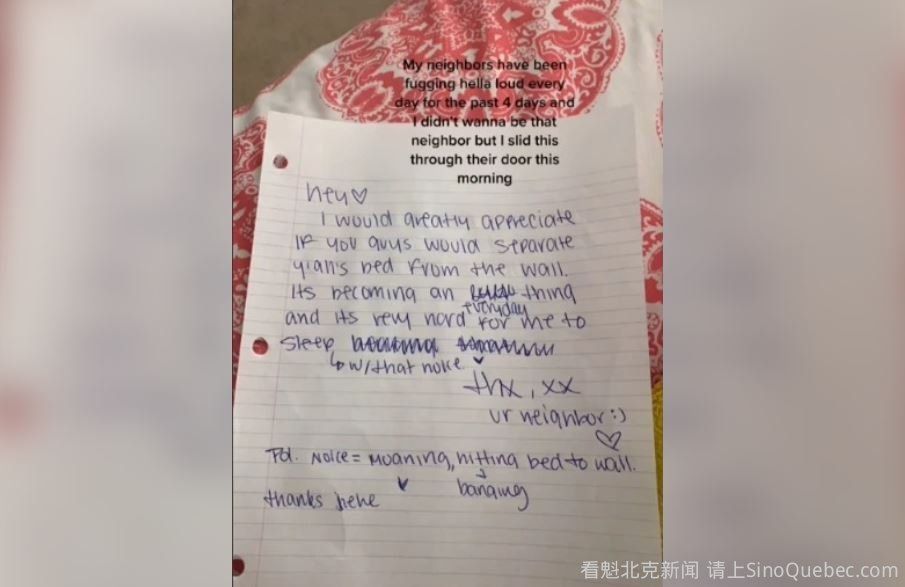 My neighbors have been
fugging hella loud every
day for the past 4 days and
I didn't wanna be that
neighbor but I slid this
through their door this
morning
hey♡
I would greatly appreciate
If you guys would separate
y'all's bed from the wall.
Its becoming an thing
everyday
and its very hard for me to
sleep
↳ w/that noise
thx, xx
ur neighbor:)
♡
Pd. Noise= Moaning, hitting bed to wall.
banging
thanks hehe
看魁北克新闻 请上SinoQuebec.com